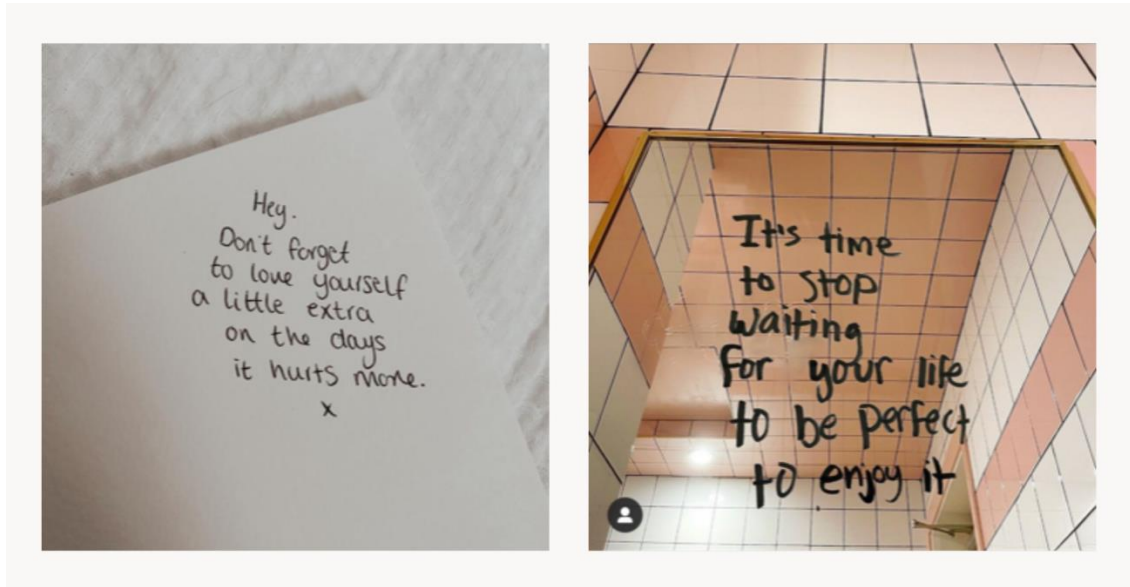 Hey.
Don't forget
to love yourself
a little extra
on the days
it hurts more.
x
It's time
to stop
waiting
for your life
to be perfect
to enjoy it